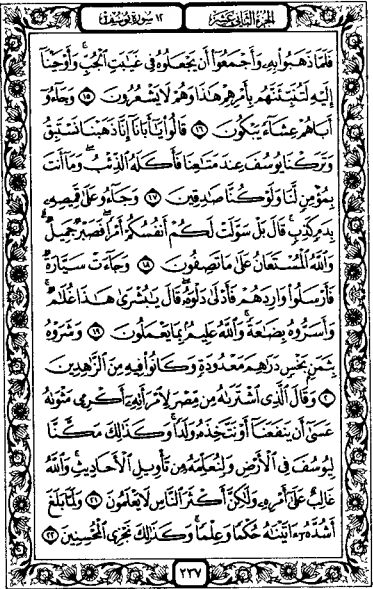 الجزء الثاني عشر
١٢ سورة يوسف
فَلَمَّا ذَهَبُوا۟ بِهِۦ وَأَجْمَعُوٓا۟ أَن يَجْعَلُوهُ فِى غَيَٰبَتِ ٱلْجُبِّ ۚ وَأَوْحَيْنَآ
إِلَيْهِ لَتُنَبِّئَنَّهُم بِأَمْرِهِمْ هَٰذَا وَهُمْ لَا يَشْعُرُونَ ١٥ وَجَآءُوٓ
أَبَاهُمْ عِشَآءً يَبْكُونَ ١٦ قَالُوا۟ يَٰٓأَبَانَآ إِنَّا ذَهَبْنَا نَسْتَبِقُ
وَتَرَكْنَا يُوسُفَ عِندَ مَتَٰعِنَا فَأَكَلَهُ ٱلذِّئْبُ ۖ وَمَآ أَنتَ
بِمُؤْمِنٍ لَّنَا وَلَوْ كُنَّا صَٰدِقِينَ ١٧ وَجَآءُو عَلَىٰ قَمِيصِهِۦ
بِدَمٍ كَذِبٍ ۚ قَالَ بَلْ سَوَّلَتْ لَكُمْ أَنفُسُكُمْ أَمْرًا ۖ فَصَبْرٌ جَمِيلٌ ۖ
وَٱللَّهُ ٱلْمُسْتَعَانُ عَلَىٰ مَا تَصِفُونَ ١٨ وَجَآءَتْ سَيَّارَةٌ
فَأَرْسَلُوا۟ وَارِدَهُمْ فَأَدْلَىٰ دَلْوَهُۥ ۖ قَالَ يَٰبُشْرَىٰ هَٰذَا غُلَٰمٌ ۚ
وَأَسَرُّوهُ بِضَٰعَةً ۚ وَٱللَّهُ عَلِيمٌۢ بِمَا يَعْمَلُونَ ١٩ وَشَرَوْهُ
بِثَمَنٍۭ بَخْسٍ دَرَٰهِمَ مَعْدُودَةٍ وَكَانُوا۟ فِيهِ مِنَ ٱلزَّٰهِدِينَ
٢٠ وَقَالَ ٱلَّذِى ٱشْتَرَىٰهُ مِن مِّصْرَ لِٱمْرَأَتِهِۦٓ أَكْرِمِى مَثْوَىٰهُ
عَسَىٰٓ أَن يَنفَعَنَآ أَوْ نَتَّخِذَهُۥ وَلَدًا ۚ وَكَذَٰلِكَ مَكَّنَّا
لِيُوسُفَ فِى ٱلْأَرْضِ وَلِنُعَلِّمَهُۥ مِن تَأْوِيلِ ٱلْأَحَادِيثِ ۚ وَٱللَّهُ
غَالِبٌ عَلَىٰٓ أَمْرِهِۦ وَلَٰكِنَّ أَكْثَرَ ٱلنَّاسِ لَا يَعْلَمُونَ ٢١ وَلَمَّا بَلَغَ
أَشُدَّهُۥٓ ءَاتَيْنَٰهُ حُكْمًا وَعِلْمًا ۚ وَكَذَٰلِكَ نَجْزِى ٱلْمُحْسِنِينَ ٢٢
٢٣٧